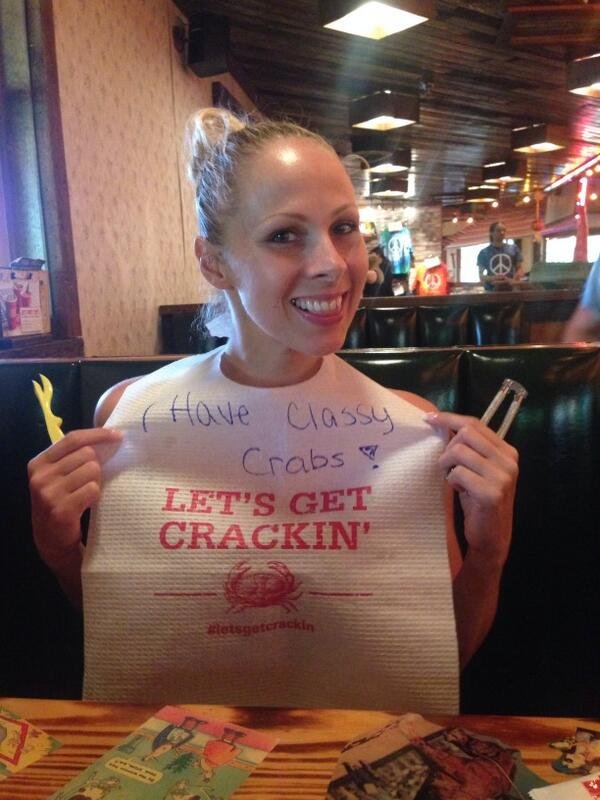 I Have Classy
Crabs
LET'S GET
CRACKIN'
#letsgetcrackin